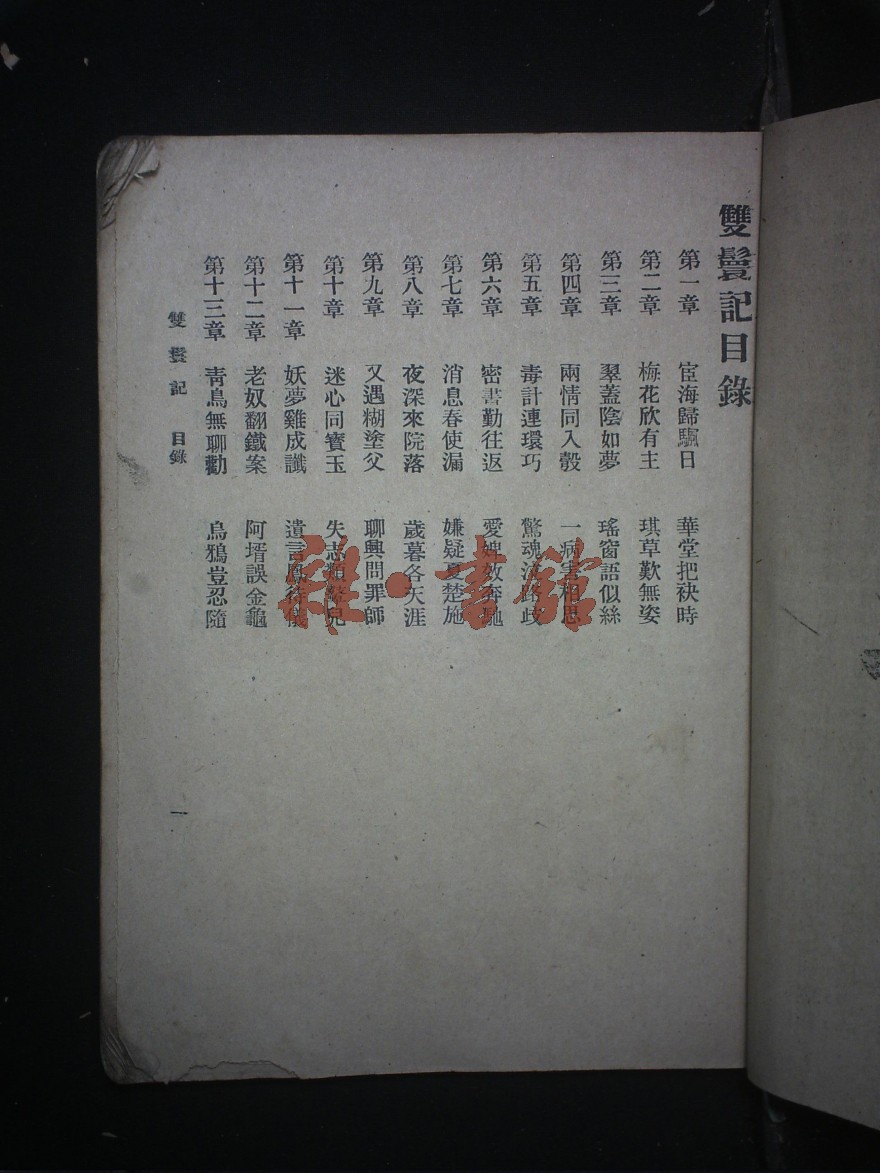 雙鬟記目錄
第一章 宦海歸颿日 華堂把袂時
第二章 梅花欣有主 琪草歎無姿
第三章 翠蓋陰如夢 瑤窗語似絲
第四章 兩情同入彀 一病害相思
第五章 毒計連環巧 驚魂泣路歧
第六章 密書勤往返 愛婢效奔馳
第七章 消息春使漏 嫌疑夏楚施
第八章 夜深來院落 歲暮各天涯
第九章 又遇糊塗父 聊興問罪師
第十章 迷心同寶玉 失志類 兒
第十一章 妖夢雞成讖 遺言鳳待儀
第十二章 老奴翻鐵案 阿壻誤金龜
第十三章 青鳥無聊勸 烏鴉豈忍隨
雙鬟記 目錄
一
雅·書館